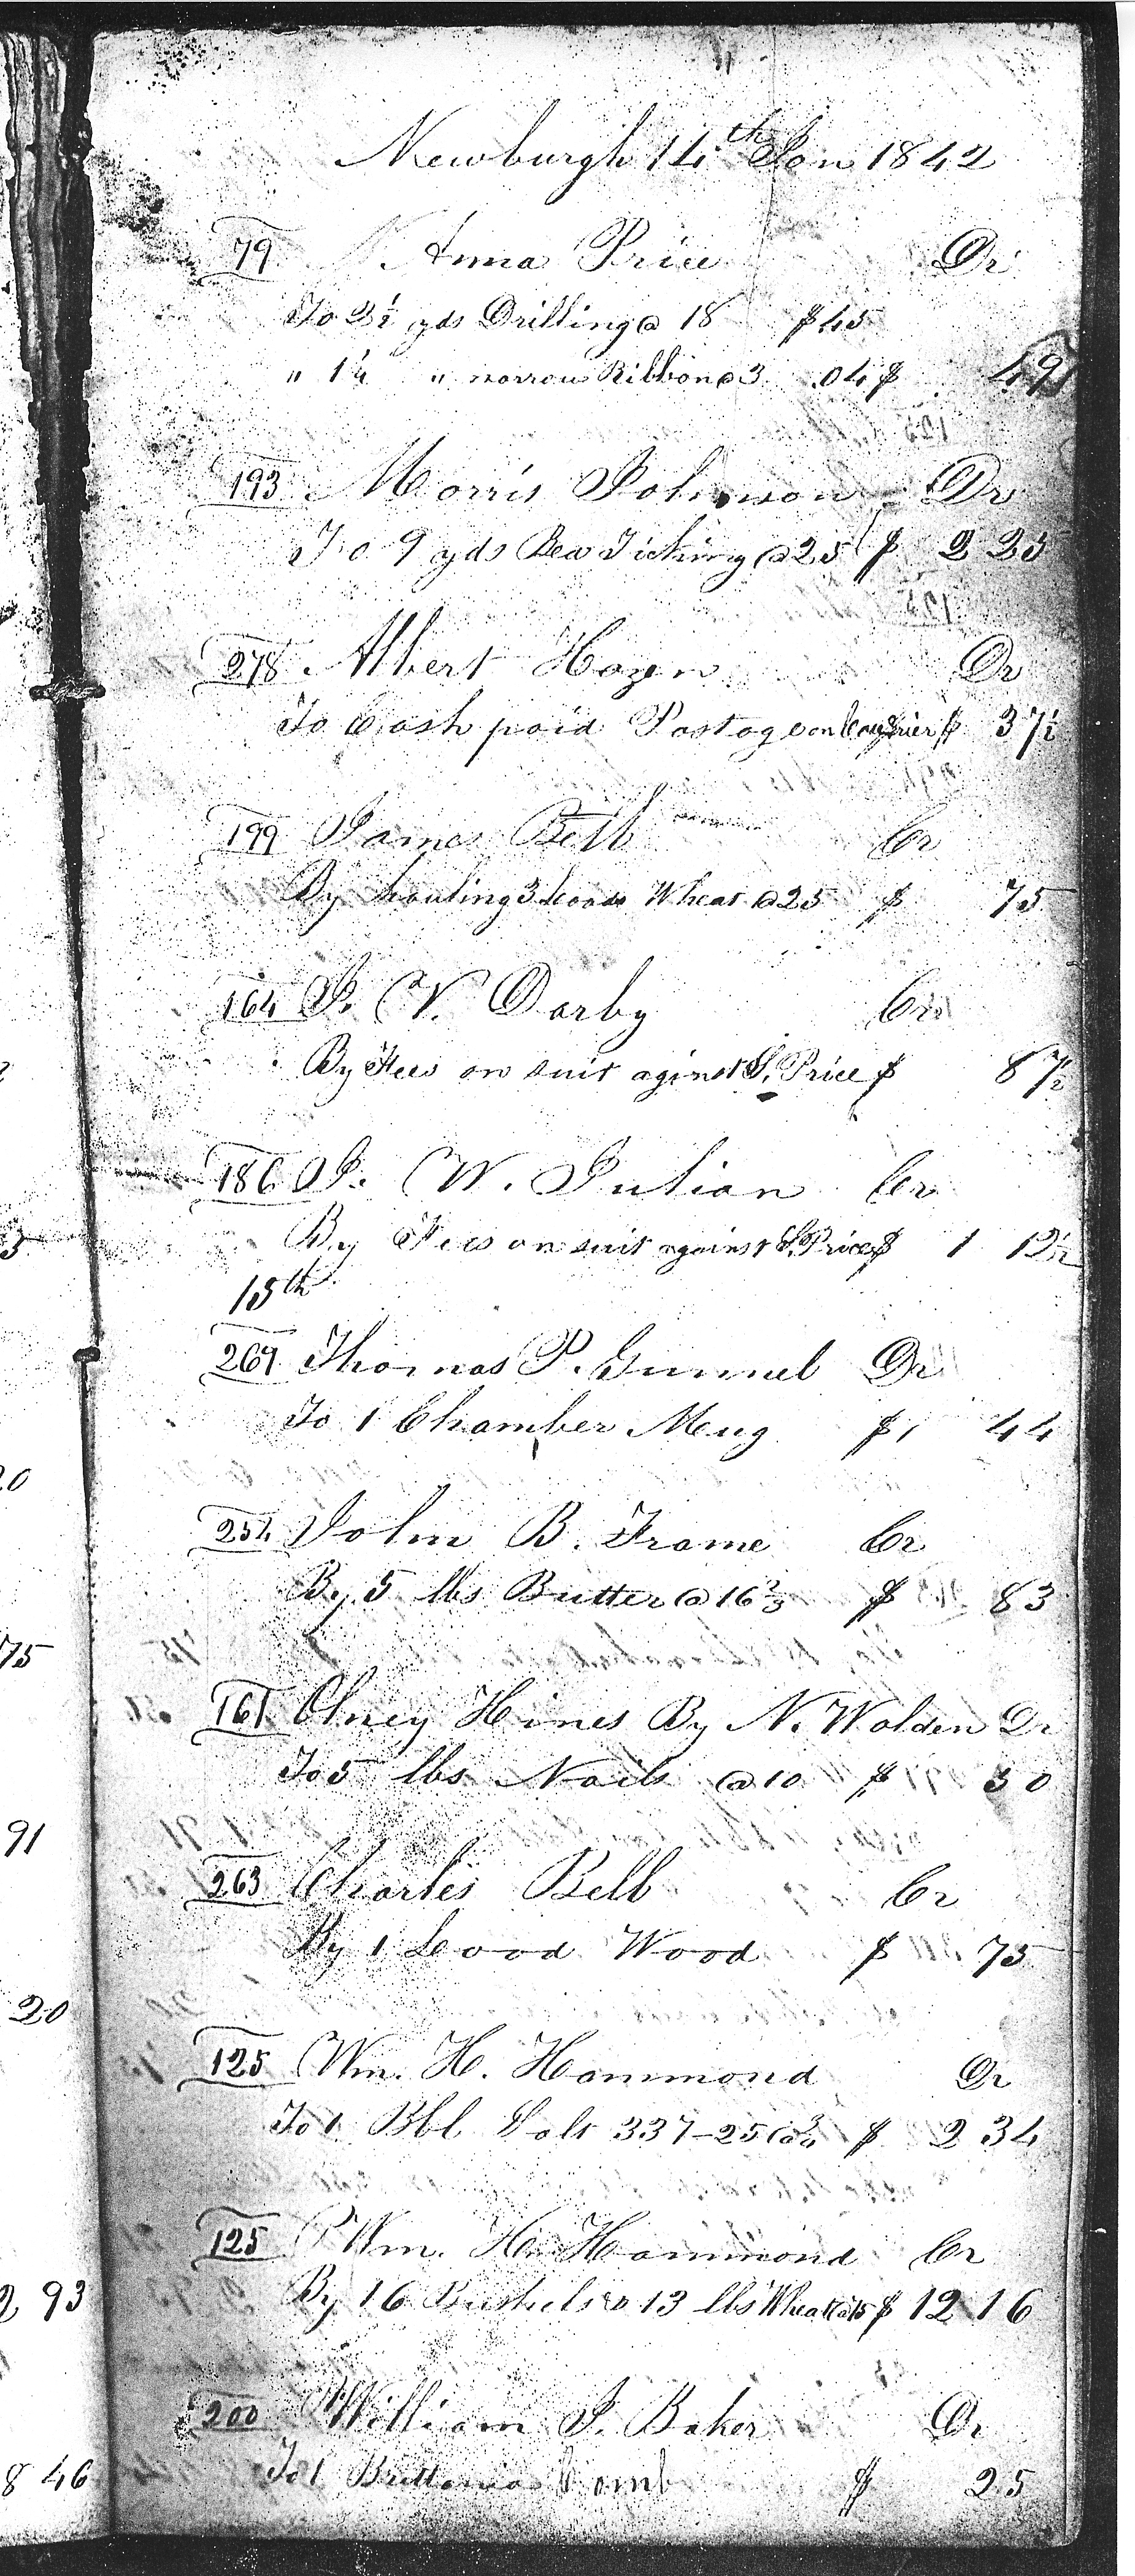 Newburgh 14th Jan 1842
79 Anna Price Dr
To 2½ yds Drilling @ 18 $45
" 1¼ " narrow Ribbon @ 3 .04 $ 49
193 Morris Johnson Dr
To 9 yds Bea Ticking @ 25 $ 2 25
278 Albert Hazen Dr
To Cash paid Postage on $ 37½
199 James Bell Cr
By hauling 3 loads Wheat @ 25 $ 75
164 J. W. Darby Cr
By Fees on suit aginst S. Price $ 87½
186 J. W. Julian Cr
By Fees on suit against S. Price $ 1 12½
15th
269 Thomas P. Gunnel Dr
To 1 Chamber Mug $ 1 44
254 John B. Frame Cr
By 5 lbs Butter @ 16⅔ $ 83
161 Olney Hines By N. Walden Dr
To 5 lbs Nails @ 10 $ 50
263 Charles Bell Cr
By 1 Load Wood $ 75
125 Wm. H. Hammond Dr
To 1 Bbl Salt 337-25 @ ¾ $ 2 34
125 Wm. H. Hammond Cr
By 16 Bushels & 13 lbs Wheat @ 75 $ 12 16
200 William J. Baker Dr
To 1 Brittania Comb $ 25
20
75
91
20
2 93
8 46